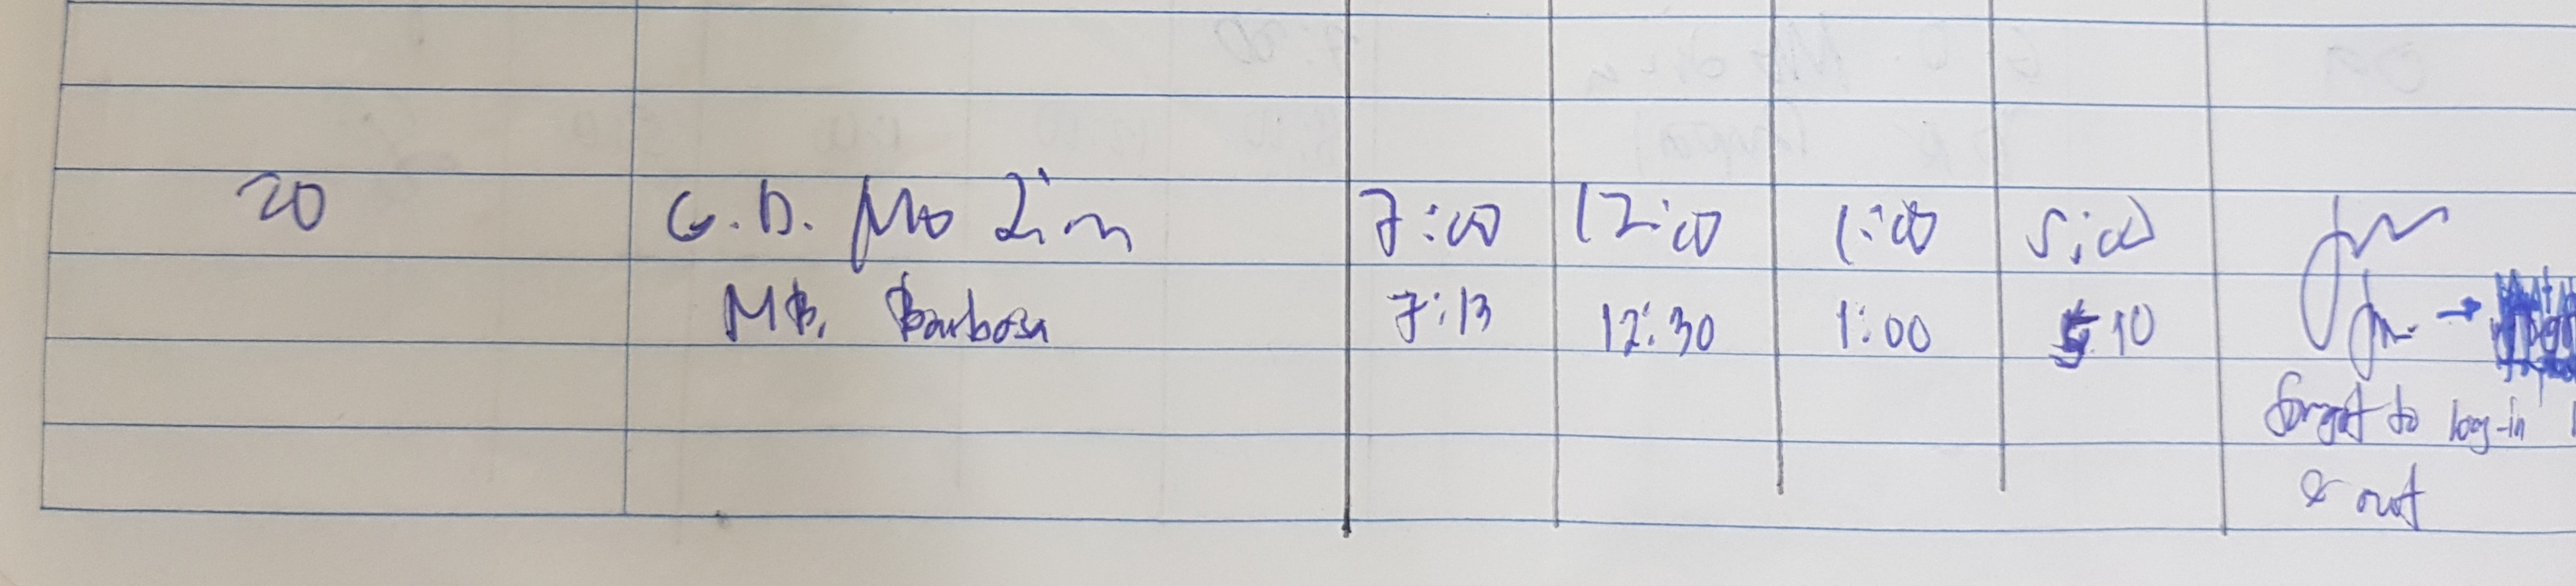 20 G.D. Mo Lim 7:00 12:00 1:00 5:00
MB. Barbosa 7:13 12:30 1:00 5:10 →
forgot to log-in
& out